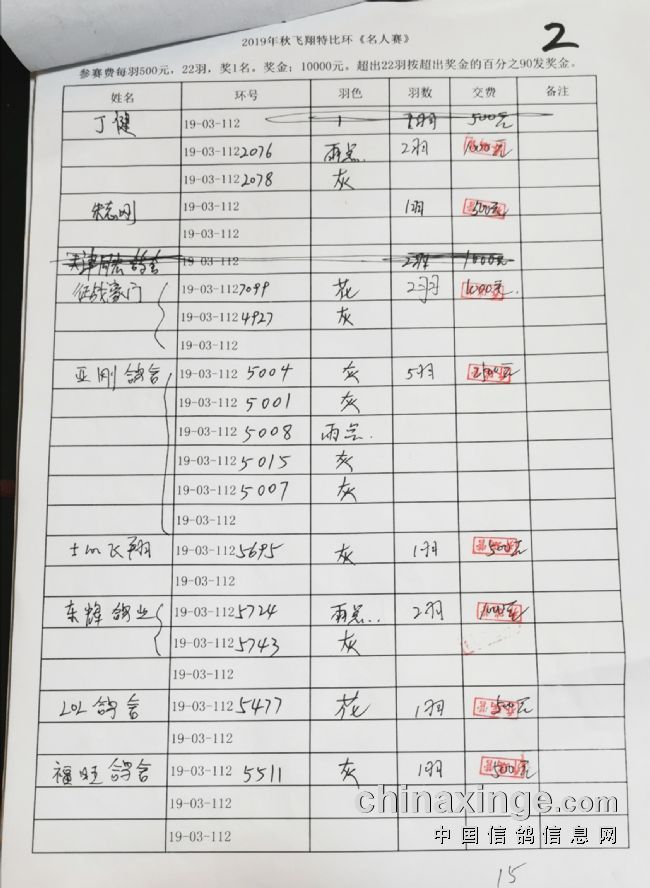 2019年秋飞翔特比环《名人赛》
2
参赛费每羽500元，22羽，奖1名。奖金：10000元，超出22羽按超出奖金的百分之90发奖金。
姓名 环号 羽色 羽数 交费 备注
丁健 19-03-112 1 1羽 500元
19-03-112 2076 雨点. 2羽 1000元
19-03-112 2078 灰
朱志刚 19-03-112 1羽 500元
19-03-112
19-03-112 2羽 1000元
征战豪门 19-03-112 7099 花 2羽 1000元.
19-03-112 4927 灰
19-03-112
亚刚鸽舍 19-03-112 5004 灰 5羽 2500元
19-03-112 5001 灰
19-03-112 5008 雨点.
19-03-112 5015 灰
19-03-112 5007 灰
19-03-112
飞翔 19-03-112 5695 灰 1羽 500元
19-03-112
东辉鸽业 19-03-112 5724 雨点.. 2羽 1000元
19-03-112 5743 灰
19-03-112
LOL鸽舍 19-03-112 5477 花 1羽 500元
19-03-112
福旺鸽舍 19-03-112 5511 灰 1羽 500元
19-03-112
19-03-112
chinaxinge.com
中国信鸽信息网
15